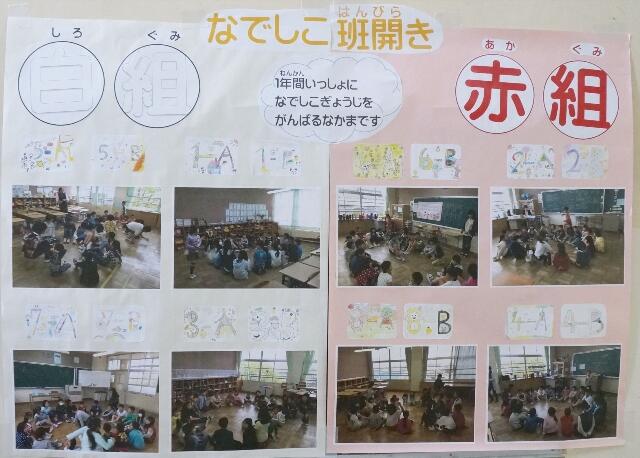 なでしこ班開き
はんびら
しろ ぐみ
白組
あか ぐみ
赤組
ねんかん
1年間いっしょに
なでしこぎょうじを
がんばるなかまです
5-A 5-B 1-A 1-B
6-B 2-A
7-A 3-A
8 B 4-A 4-B